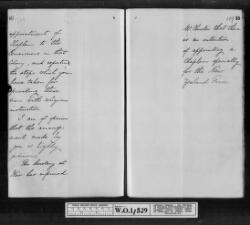 appointment of
Chaplain to the
Pensioners in that
Colony, and reporting
the steps which you
have taken for
providing these
men with religious
instruction
I am of opinion
that the arrange-
ment made by
you is highly
judicious
The Secretary at
War has informed
Mr. that there
is no intention
of appointing a
Chaplain specially
for the New
Zealand Force
W.O.1/529